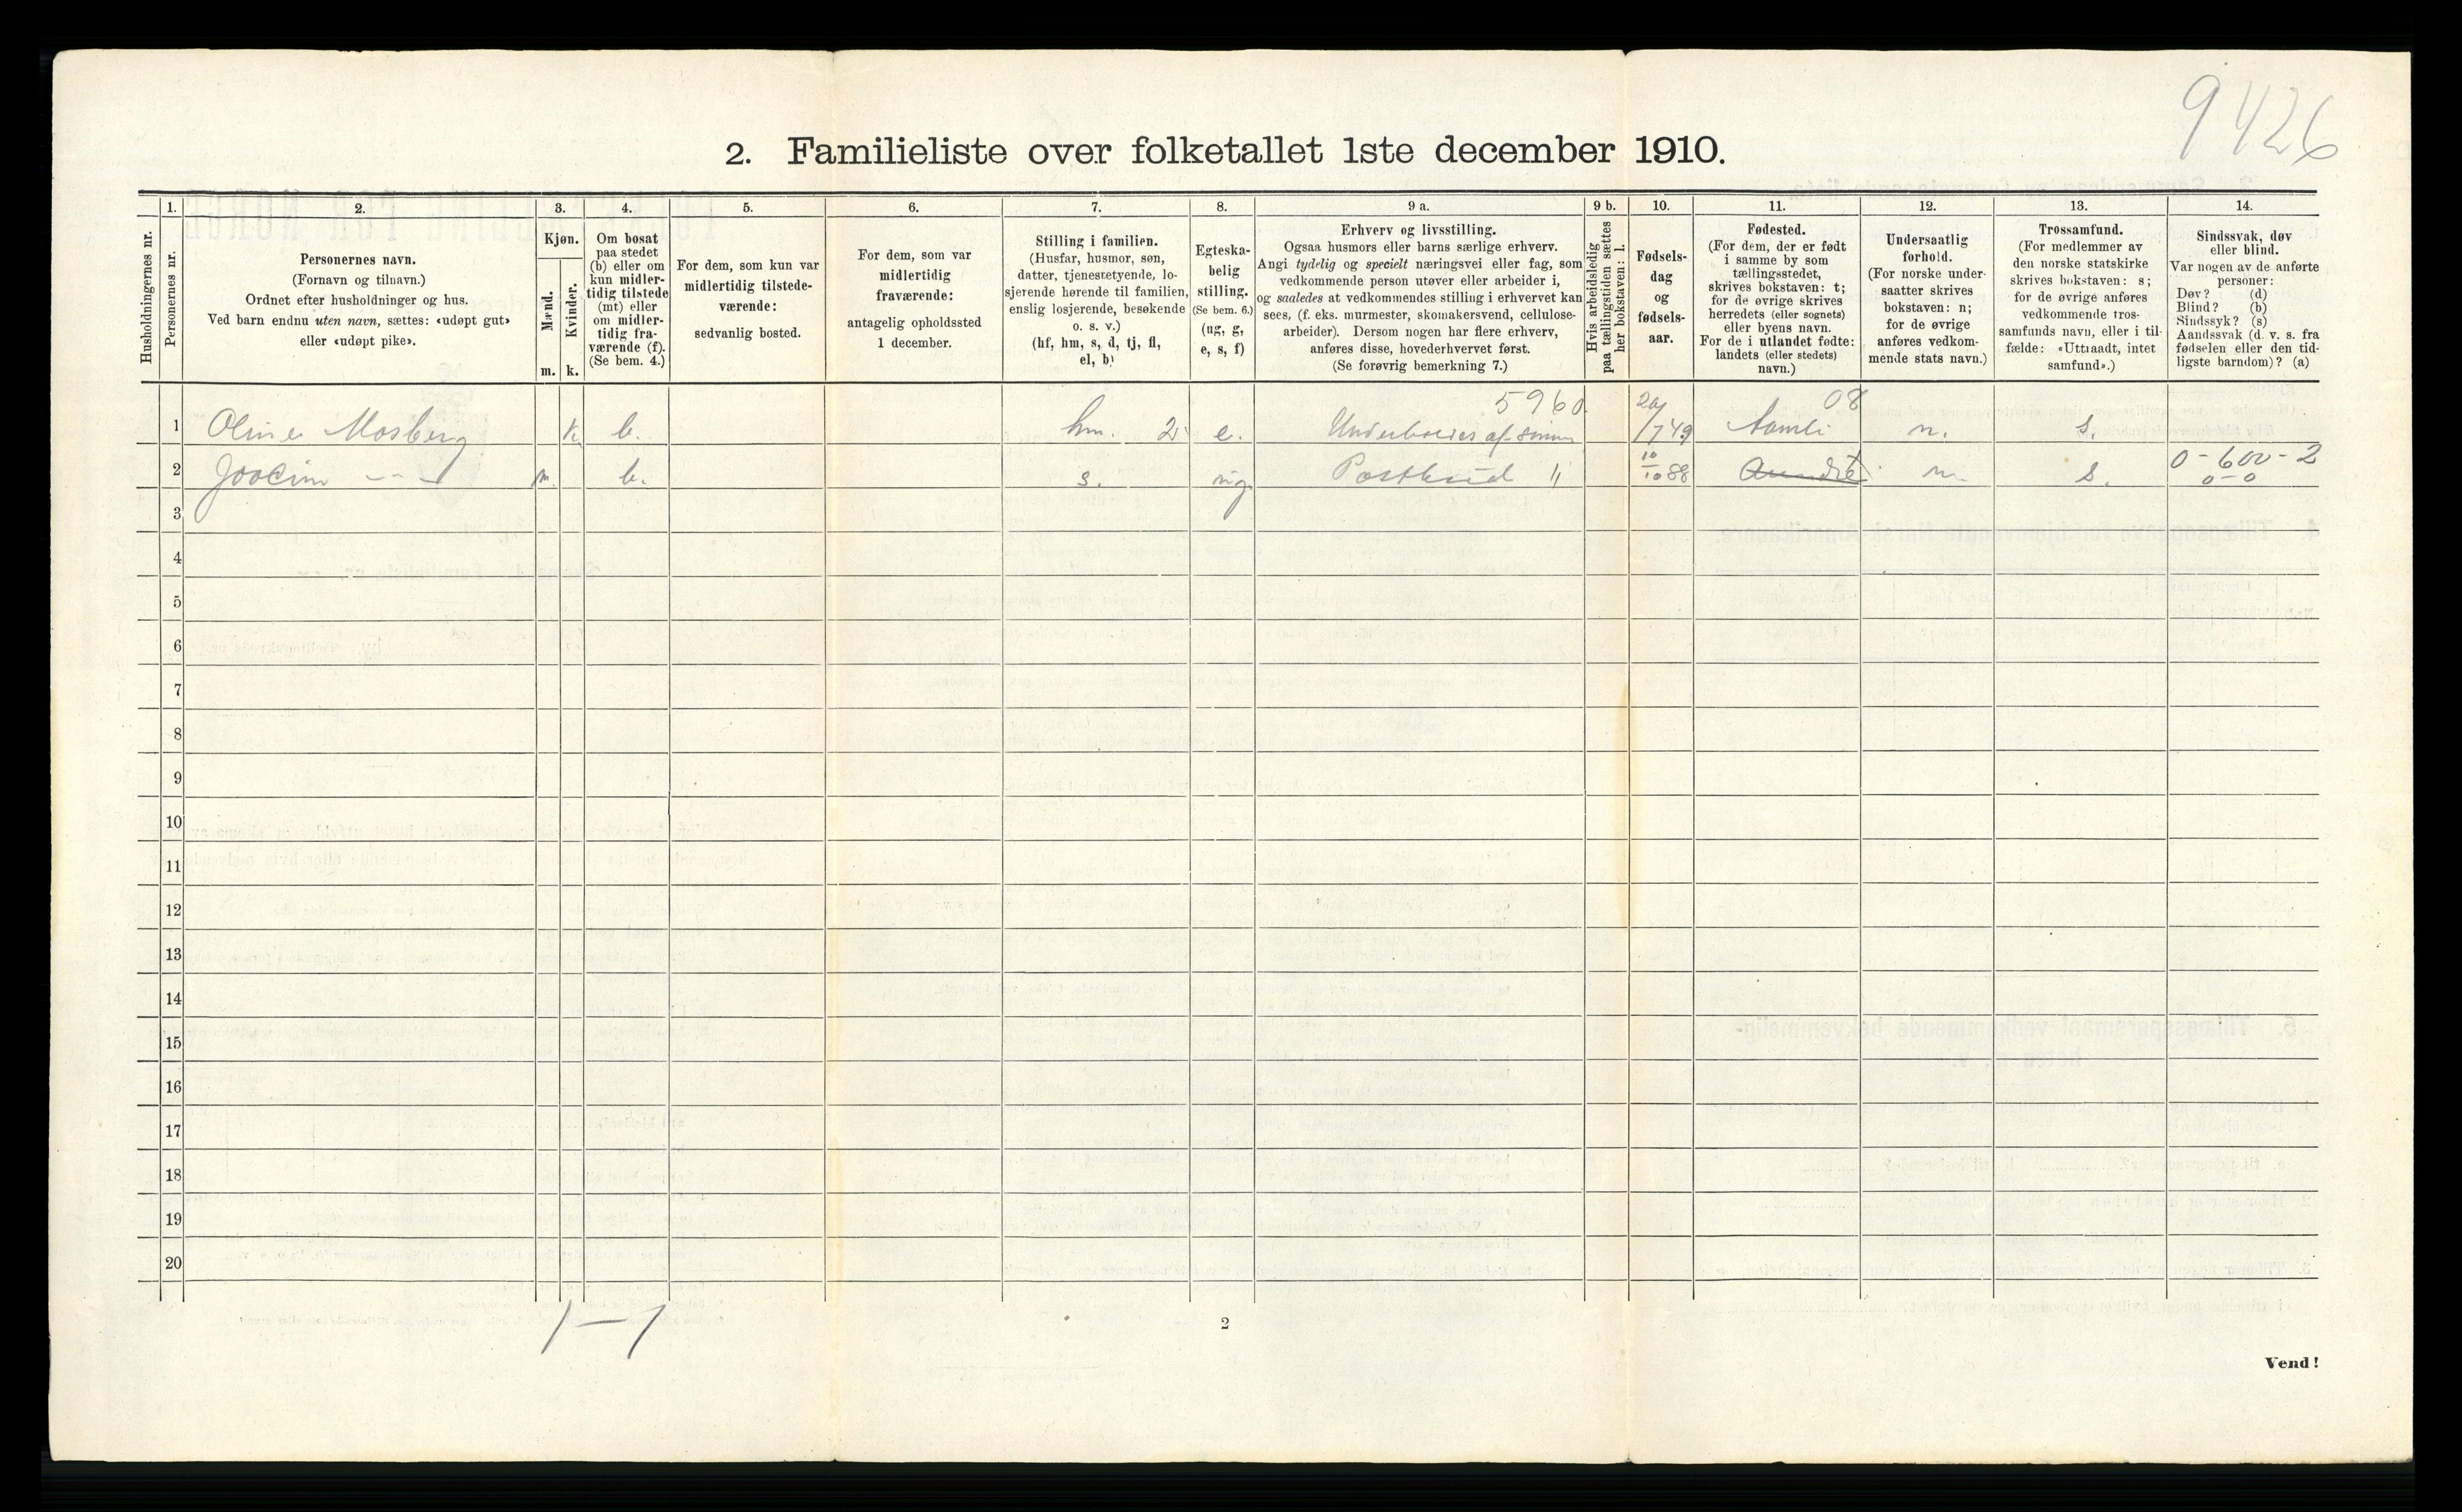 9426
2. Familieliste over folketallet 1ste december 1910.
Husholdningernes nr.
1.
Personernes nr.
2.
Personernes navn.
(Fornavn og tilnavn.)
Ordnet efter husholdninger og hus.
Ved barn endnu uten navn, sættes: «udøpt gut»
eller «udøpt pike».
3.
Kjøn.
Mænd.
Kvinder.
m. k.
4.
Om bosat
paa stedet
(b) eller om
kun midler-
tidig tilstede
(mt) eller
om midler-
tidig fra-
værende (f).
(Se bem. 4.)
5.
For dem, som kun var
midlertidig tilstede-
værende:
sedvanlig bosted.
6.
For dem, som var
midlertidig
fraværende:
antagelig opholdssted
1 december.
7.
Stilling i familien.
(Husfar, husmor, søn,
datter, tjenestetyende, lo-
sjerende hørende til familien,
enslig losjerende, besøkende
o. s. v.)
(hf, hm, s, d, tj, fl,
el, b)
8.
Egteska-
belig
stilling.
(Se bem. 6.)
(ug, g,
e, s, f)
9 a.
Erhverv og livsstilling.
Ogsaa husmors eller barns særlige erhverv.
Angi tydelig og specielt næringsvei eller fag, som
vedkommende person utøver eller arbeider i,
og saaledes at vedkommendes stilling i erhvervet kan
sees, (f. eks. murmester, skomakersvend, cellulose-
arbeider). Dersom nogen har flere erhverv,
anføres disse, hovederhvervet først.
(Se forøvrig bemerkning 7.)
9 b.
Hvis arbeidsledig
paa tællingstiden sættes
her bokstaven: l.
10.
Fødsels-
dag
og
fødsels-
aar.
11.
Fødested.
(For dem, der er født
i samme by som
tællingsstedet,
skrives bokstaven: t;
for de øvrige skrives
herredets (eller sognets)
eller byens navn.
For de i utlandet fødte:
landets (eller stedets)
navn.)
12.
Undersaatlig
forhold.
(For norske under-
saatter skrives
bokstaven: n;
for de øvrige
anføres vedkom-
mende stats navn.)
13.
Trossamfund.
(For medlemmer av
den norske statskirke
skrives bokstaven: s;
for de øvrige anføres
vedkommende tros-
samfunds navn, eller i til-
fælde: «Uttraadt, intet
samfund».)
14.
Sindssvak, døv
eller blind.
Var nogen av de anførte
personer:
Døv? (d)
Blind? (b)
Sindssyk? (s)
Aandssvak (d. v. s. fra
fødselen eller den tid-
ligste barndom)? (a)
5960 08
1 Oline Mosberg k b. hm. 2 e. af sønnen 20/7 49 Aamli n. s.
2 Joacim -- m. b. s. ug Postbud " 10/10 88 t n. s. 0-600-2
0-0
3
4
5
6
7
8
9
10
11
12
13
14
15
16
17
18
19
20
1-1
2
Vend!